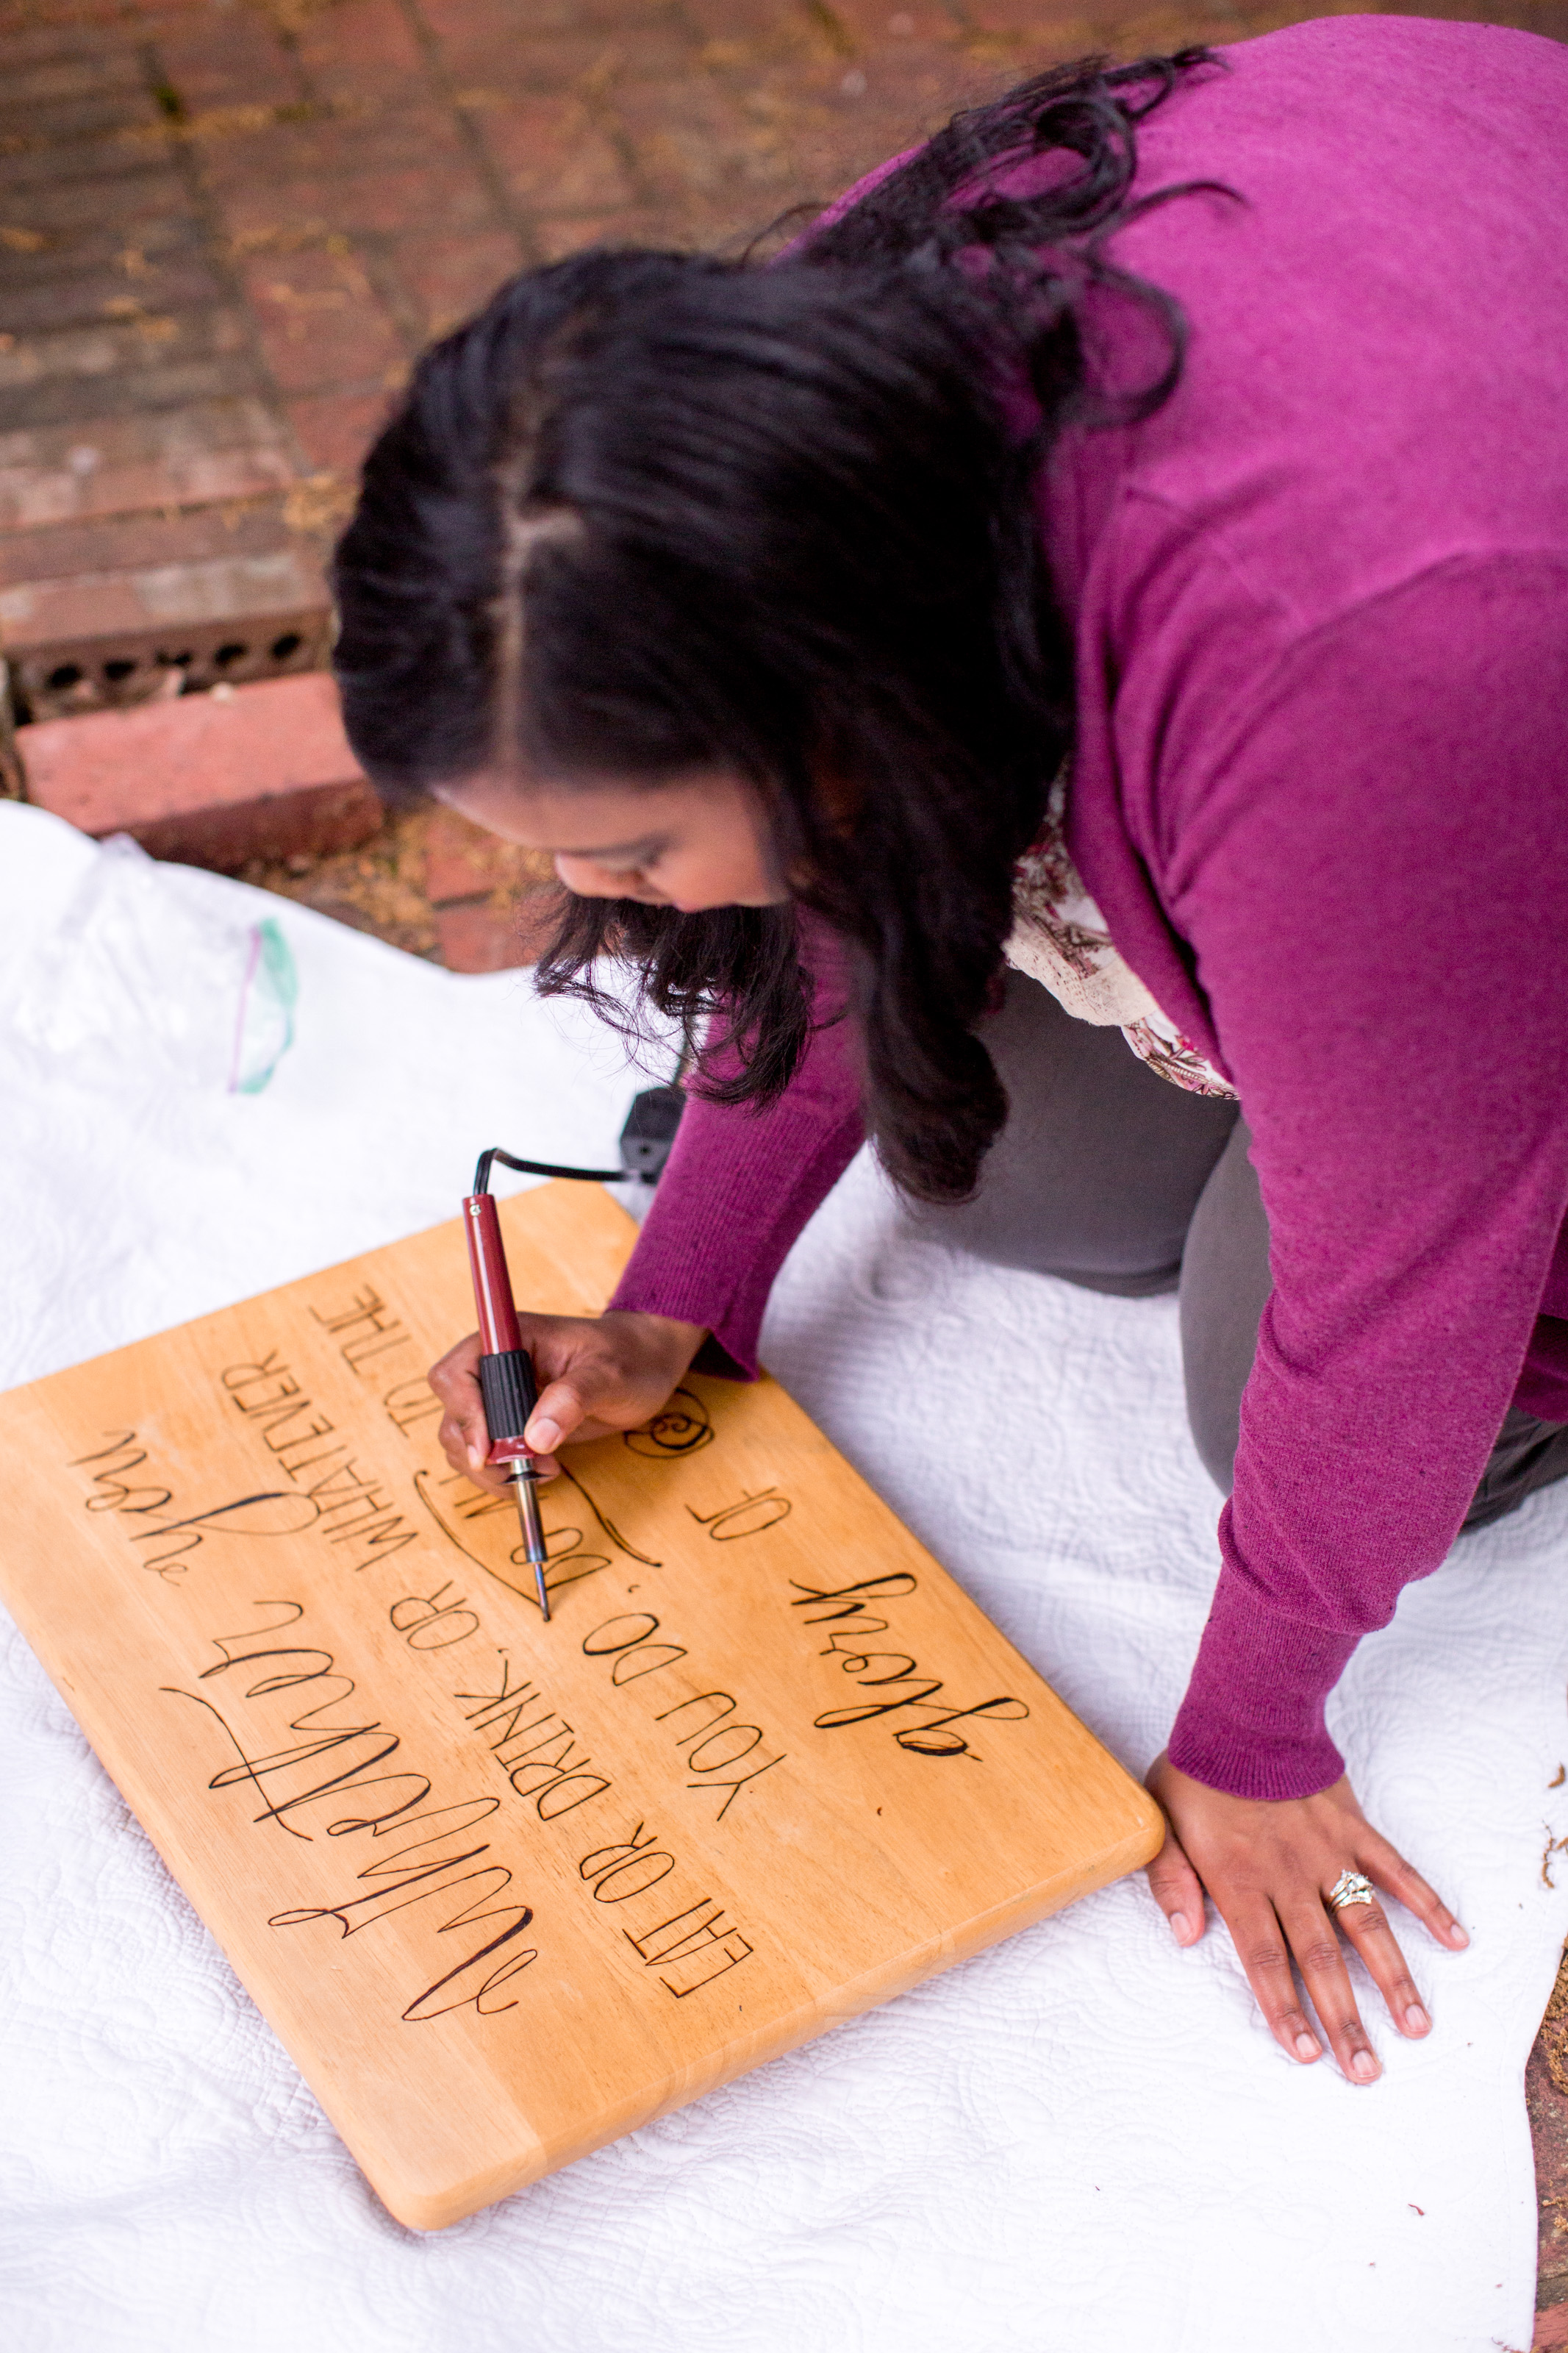 Whether you
EAT OR DRINK, OR WHATEVER
YOU DO, DO ALL TO THE
glory OF